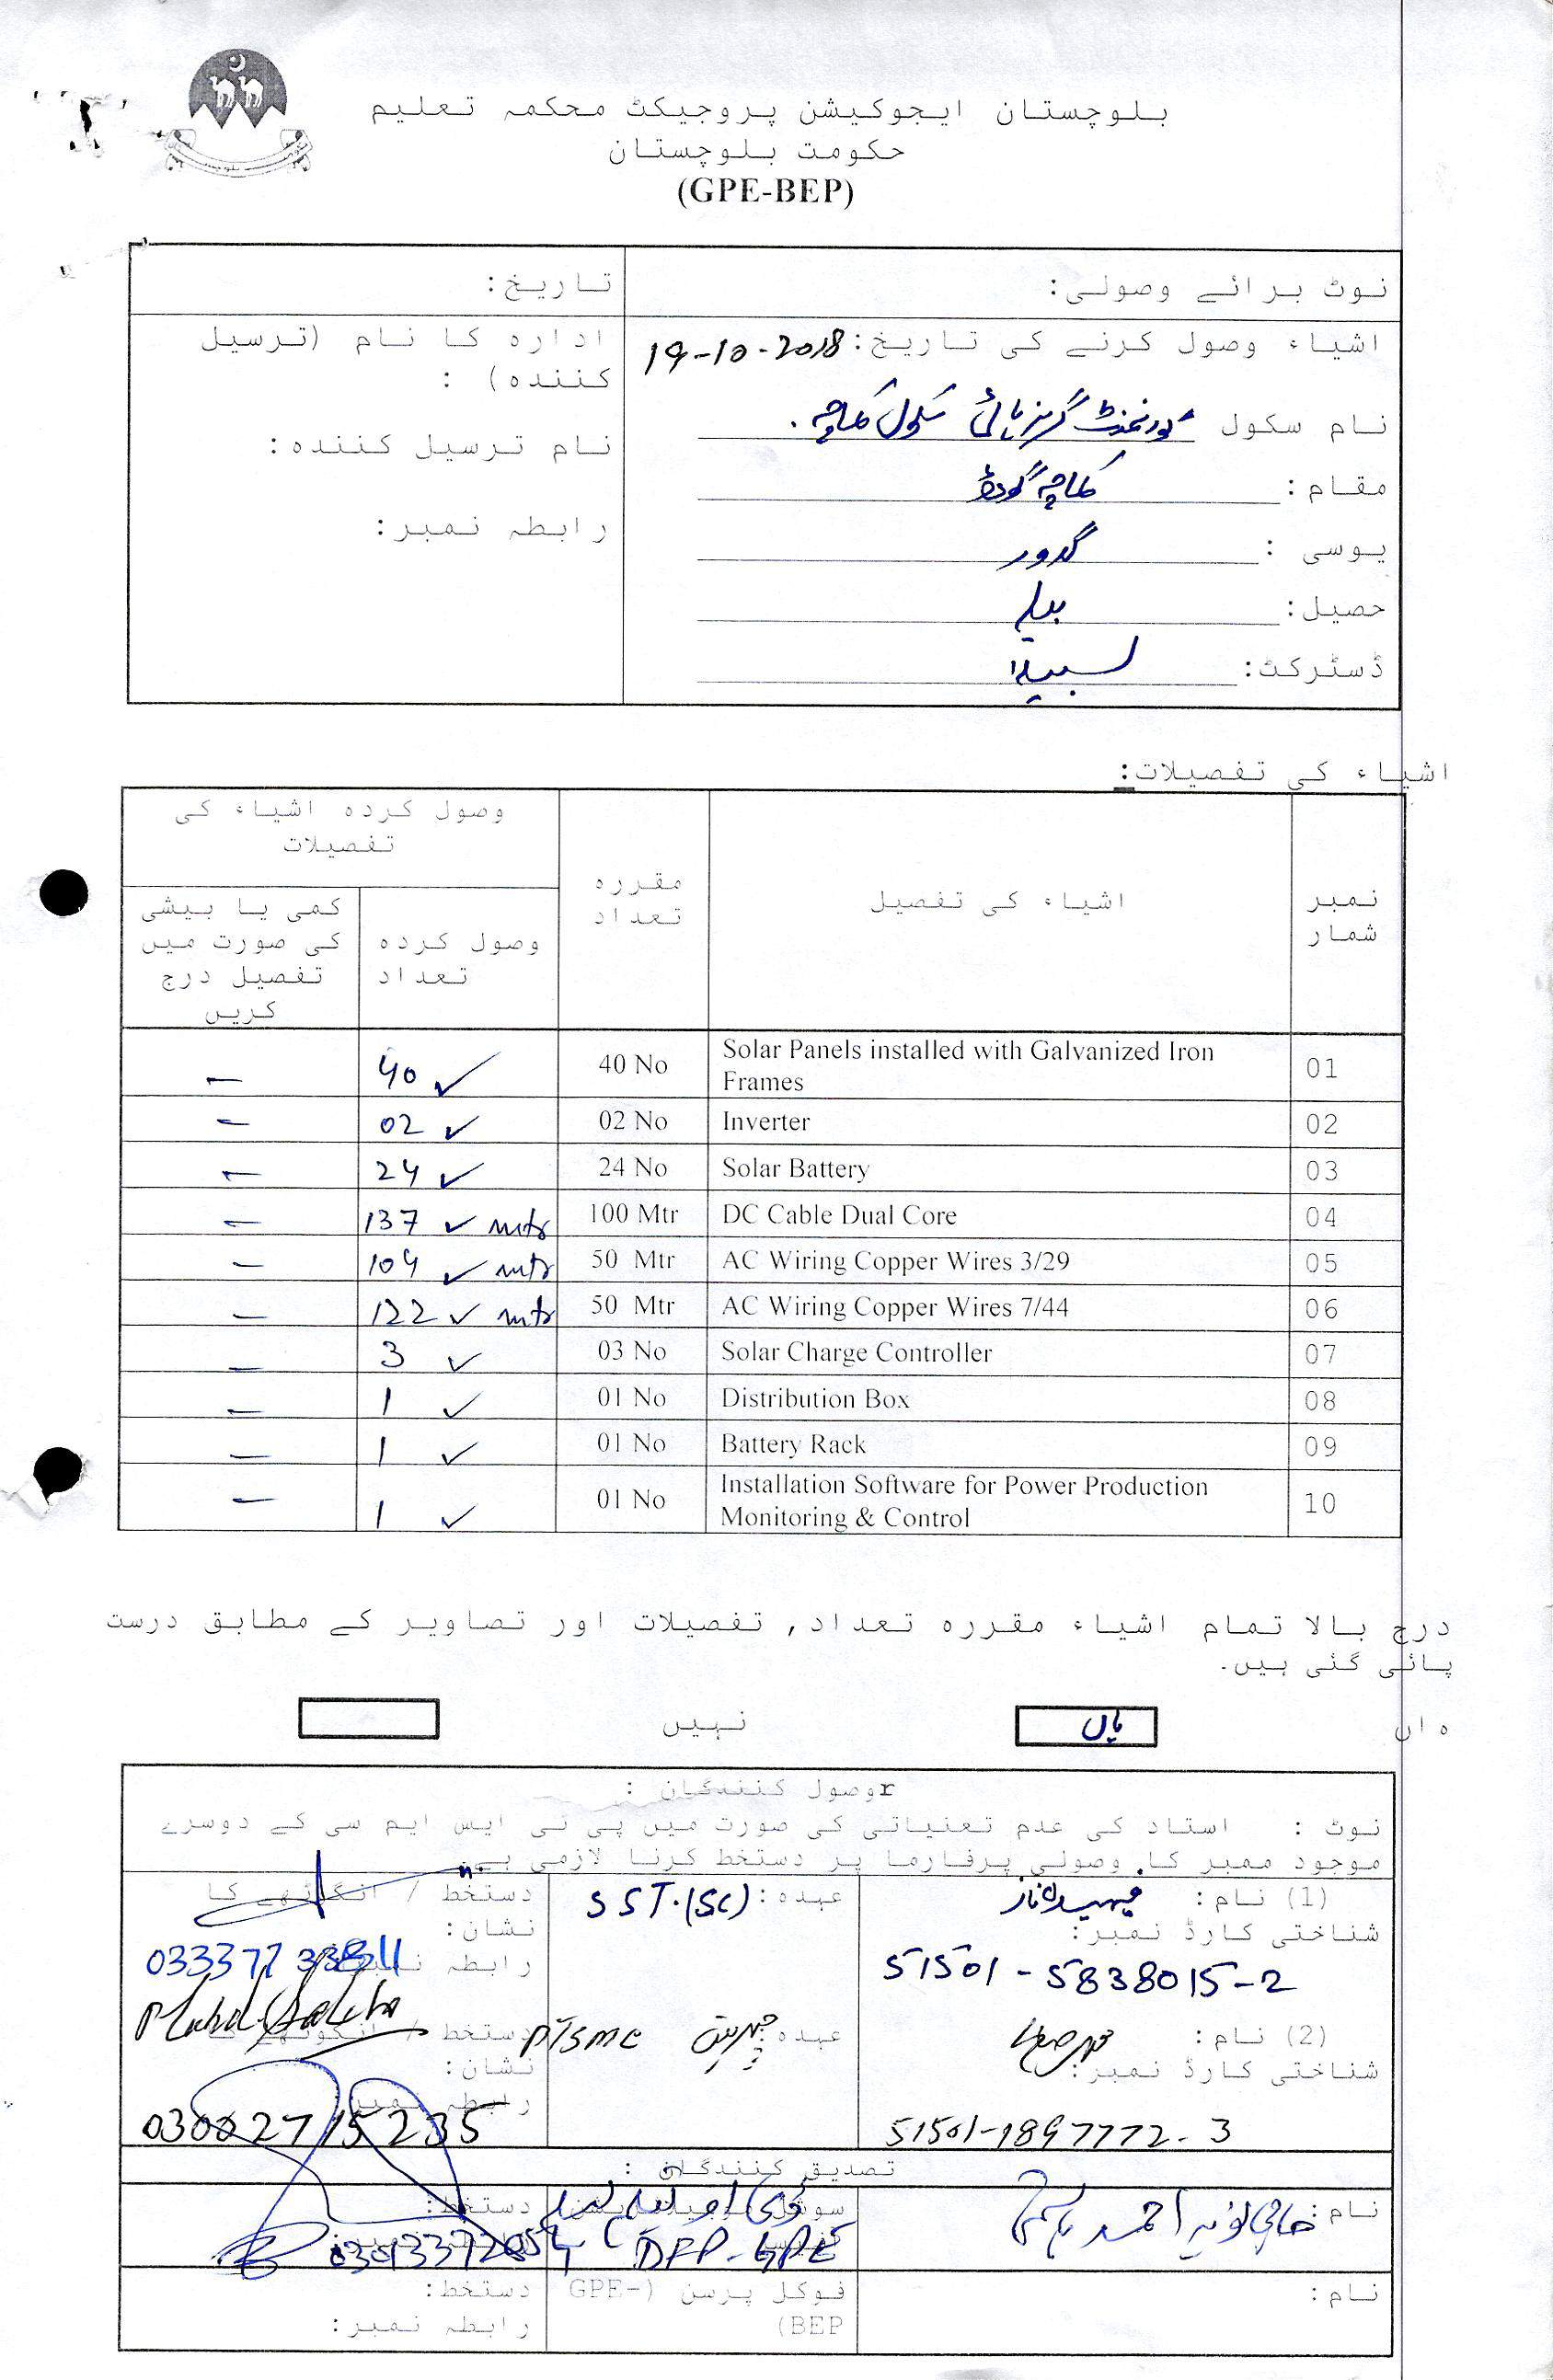 بلوچستان ایجوکیشن پروجیکٹ محکمہ تعلیم
حکومت بلوچستان
(GPE-BEP)
نوٹ برائے وصولی:
تاریخ:
اشیاء وصول کرنے کی تاریخ: 19-10-2018
نام سکول گورنمنٹ گرلز ہائی سکول کماچہ
مقام: کماچہ گوٹھ
یوسی : گدور
حصیل: بیلہ
ڈسٹرکٹ: لسبیلہ
ادارہ کا نام (ترسیل
کنندہ) :
نام ترسیل کنندہ:
رابطہ نمبر:
اشیاء کی تفصیلات:
نمبر شمار
اشیاء کی تفصیل
مقررہ تعداد
وصول کردہ اشیاء کی تفصیلات
وصول کردہ تعداد
کمی یا بیشی کی صورت میں تفصیل درج کریں
01 Solar Panels installed with Galvanized Iron Frames 40 No 40 ✓ –
02 Inverter 02 No 02 ✓ –
03 Solar Battery 24 No 24 ✓ –
04 DC Cable Dual Core 100 Mtr 137 ✓ mtr –
05 AC Wiring Copper Wires 3/29 50 Mtr 104 ✓ mtr –
06 AC Wiring Copper Wires 7/44 50 Mtr 122 ✓ mtr –
07 Solar Charge Controller 03 No 3 ✓ –
08 Distribution Box 01 No 1 ✓ –
09 Battery Rack 01 No 1 ✓ –
10 Installation Software for Power Production Monitoring & Control 01 No 1 ✓ –
درج بالا تمام اشیاء مقررہ تعداد, تفصیلات اور تصاویر کے مطابق درست
پائی گئی ہیں.
ہاں ہاں نہیں
rوصول کنندگان :
نوٹ : استاد کی عدم تعنیاتی کی صورت میں پی ٹی ایس ایم سی کے دوسرے
موجود ممبر کا وصولی پرفارما پر دستخط کرنا لازمی ہے.
(1) نام:
عہدہ: SST.(SC)
دستخط / انگوٹھے کا
نشان:
شناختی کارڈ نمبر:
51501-5838015-2
رابطہ نمبر
(2) نام:
عہدہ PTSMC
دستخط / انگوٹھے
نشان:
شناختی کارڈ نمبر:
51501-1897772-3
رابطہ نمبر
03002715235
تصدیق کنندگان :
نام:
سوشل
DFP-GPE
دستخط:
نام:
فوکل پرسن (GPE-BEP)
دستخط:
رابطہ نمبر: